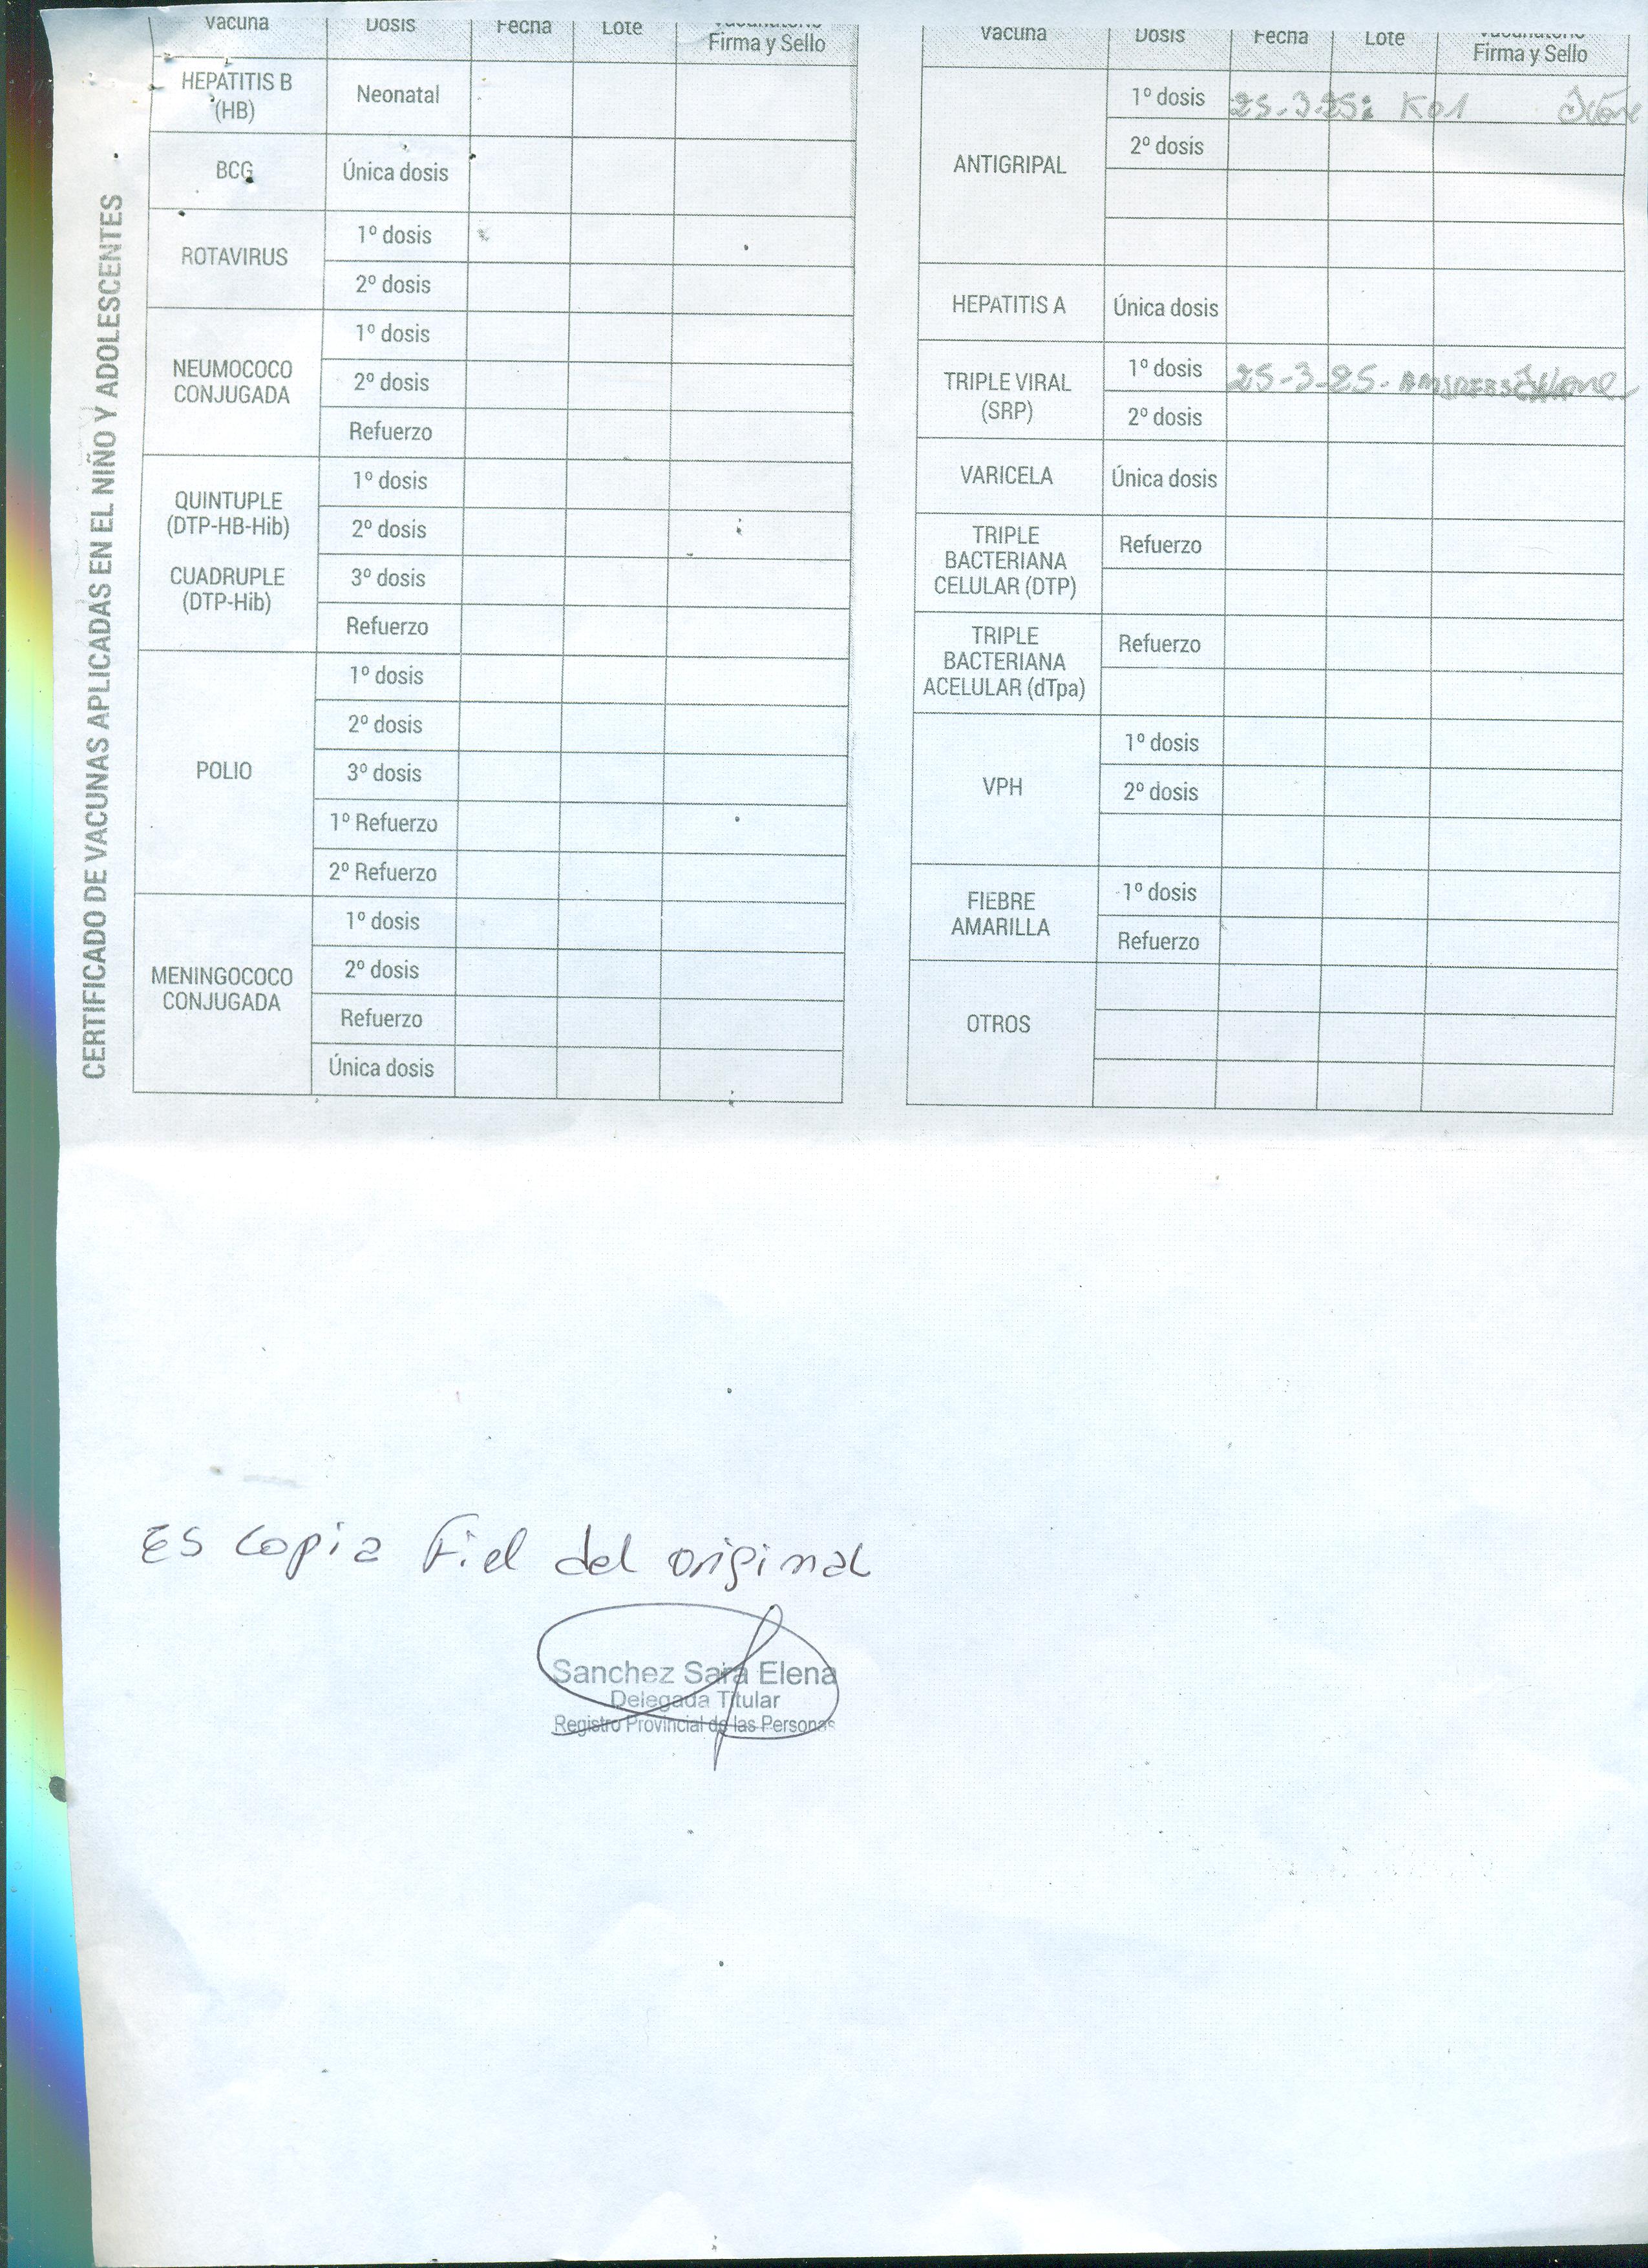 CERTIFICADO DE VACUNAS APLICADAS EN EL NIÑO Y ADOLESCENTES
Vacuna Dosis Fecha Lote Vacunatorio
Firma y Sello
HEPATITIS B
(HB)
Neonatal
BCG Única dosis
ROTAVIRUS
1º dosis
2º dosis
NEUMOCOCO
CONJUGADA
1º dosis
2º dosis
Refuerzo
QUINTUPLE
(DTP-HB-Hib)
CUADRUPLE
(DTP-Hib)
1º dosis
2º dosis
3º dosis
Refuerzo
POLIO
1º dosis
2º dosis
3º dosis
1º Refuerzo
2º Refuerzo
MENINGOCOCO
CONJUGADA
1º dosis
2º dosis
Refuerzo
Única dosis
Vacuna Dosis Fecha Lote Vacunatorio
Firma y Sello
ANTIGRIPAL
1º dosis 25-3-25 K01
2º dosis
HEPATITIS A Única dosis
TRIPLE VIRAL
(SRP)
1º dosis 25-3-25
2º dosis
VARICELA Única dosis
TRIPLE
BACTERIANA
CELULAR (DTP)
Refuerzo
TRIPLE
BACTERIANA
ACELULAR (dTpa)
Refuerzo
VPH
1º dosis
2º dosis
FIEBRE
AMARILLA
1º dosis
Refuerzo
OTROS
Es copia Fiel del original
Sanchez Sara Elena
Delegada Titular
Registro Provincial de las Personas